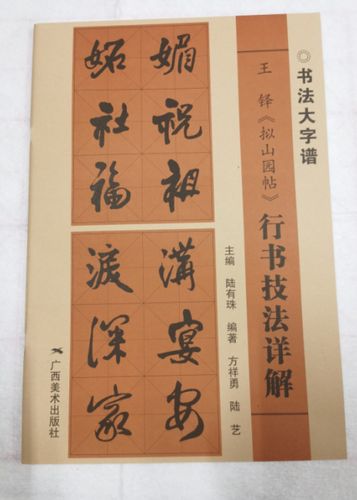 书法大字谱
王铎《拟山园帖》行书技法详解
主编 陆有珠 编著 方祥勇 陆艺
媚祝祖
妬社福
溝宴安
渡深家
广西美术出版社